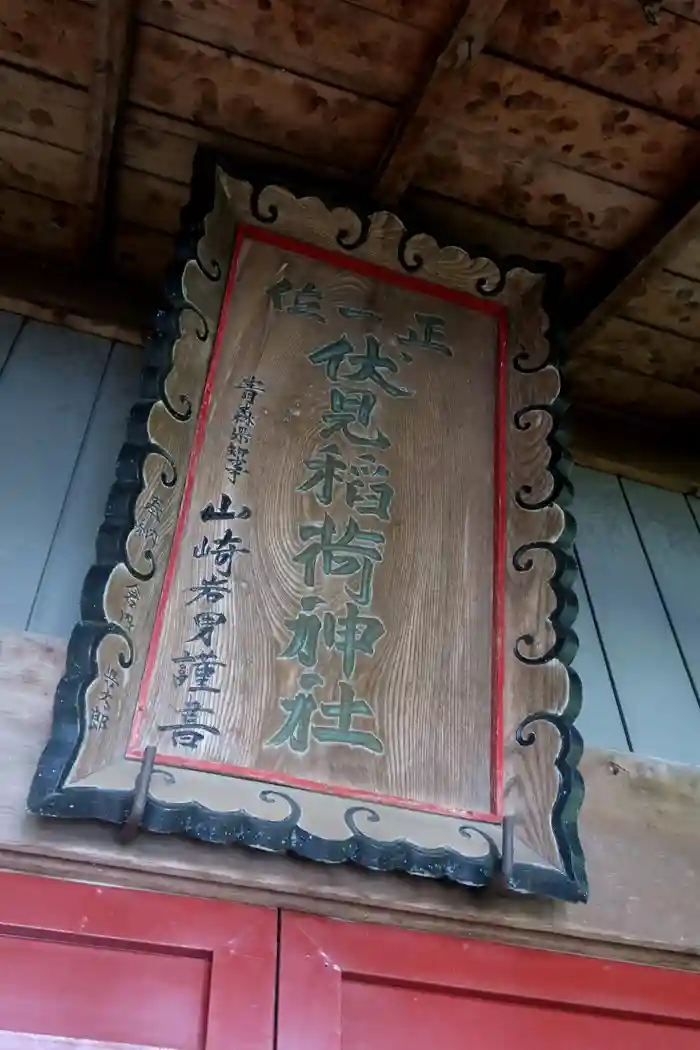 正一位
伏見稲荷神社
青森県知事
山崎岩男謹書
奉納